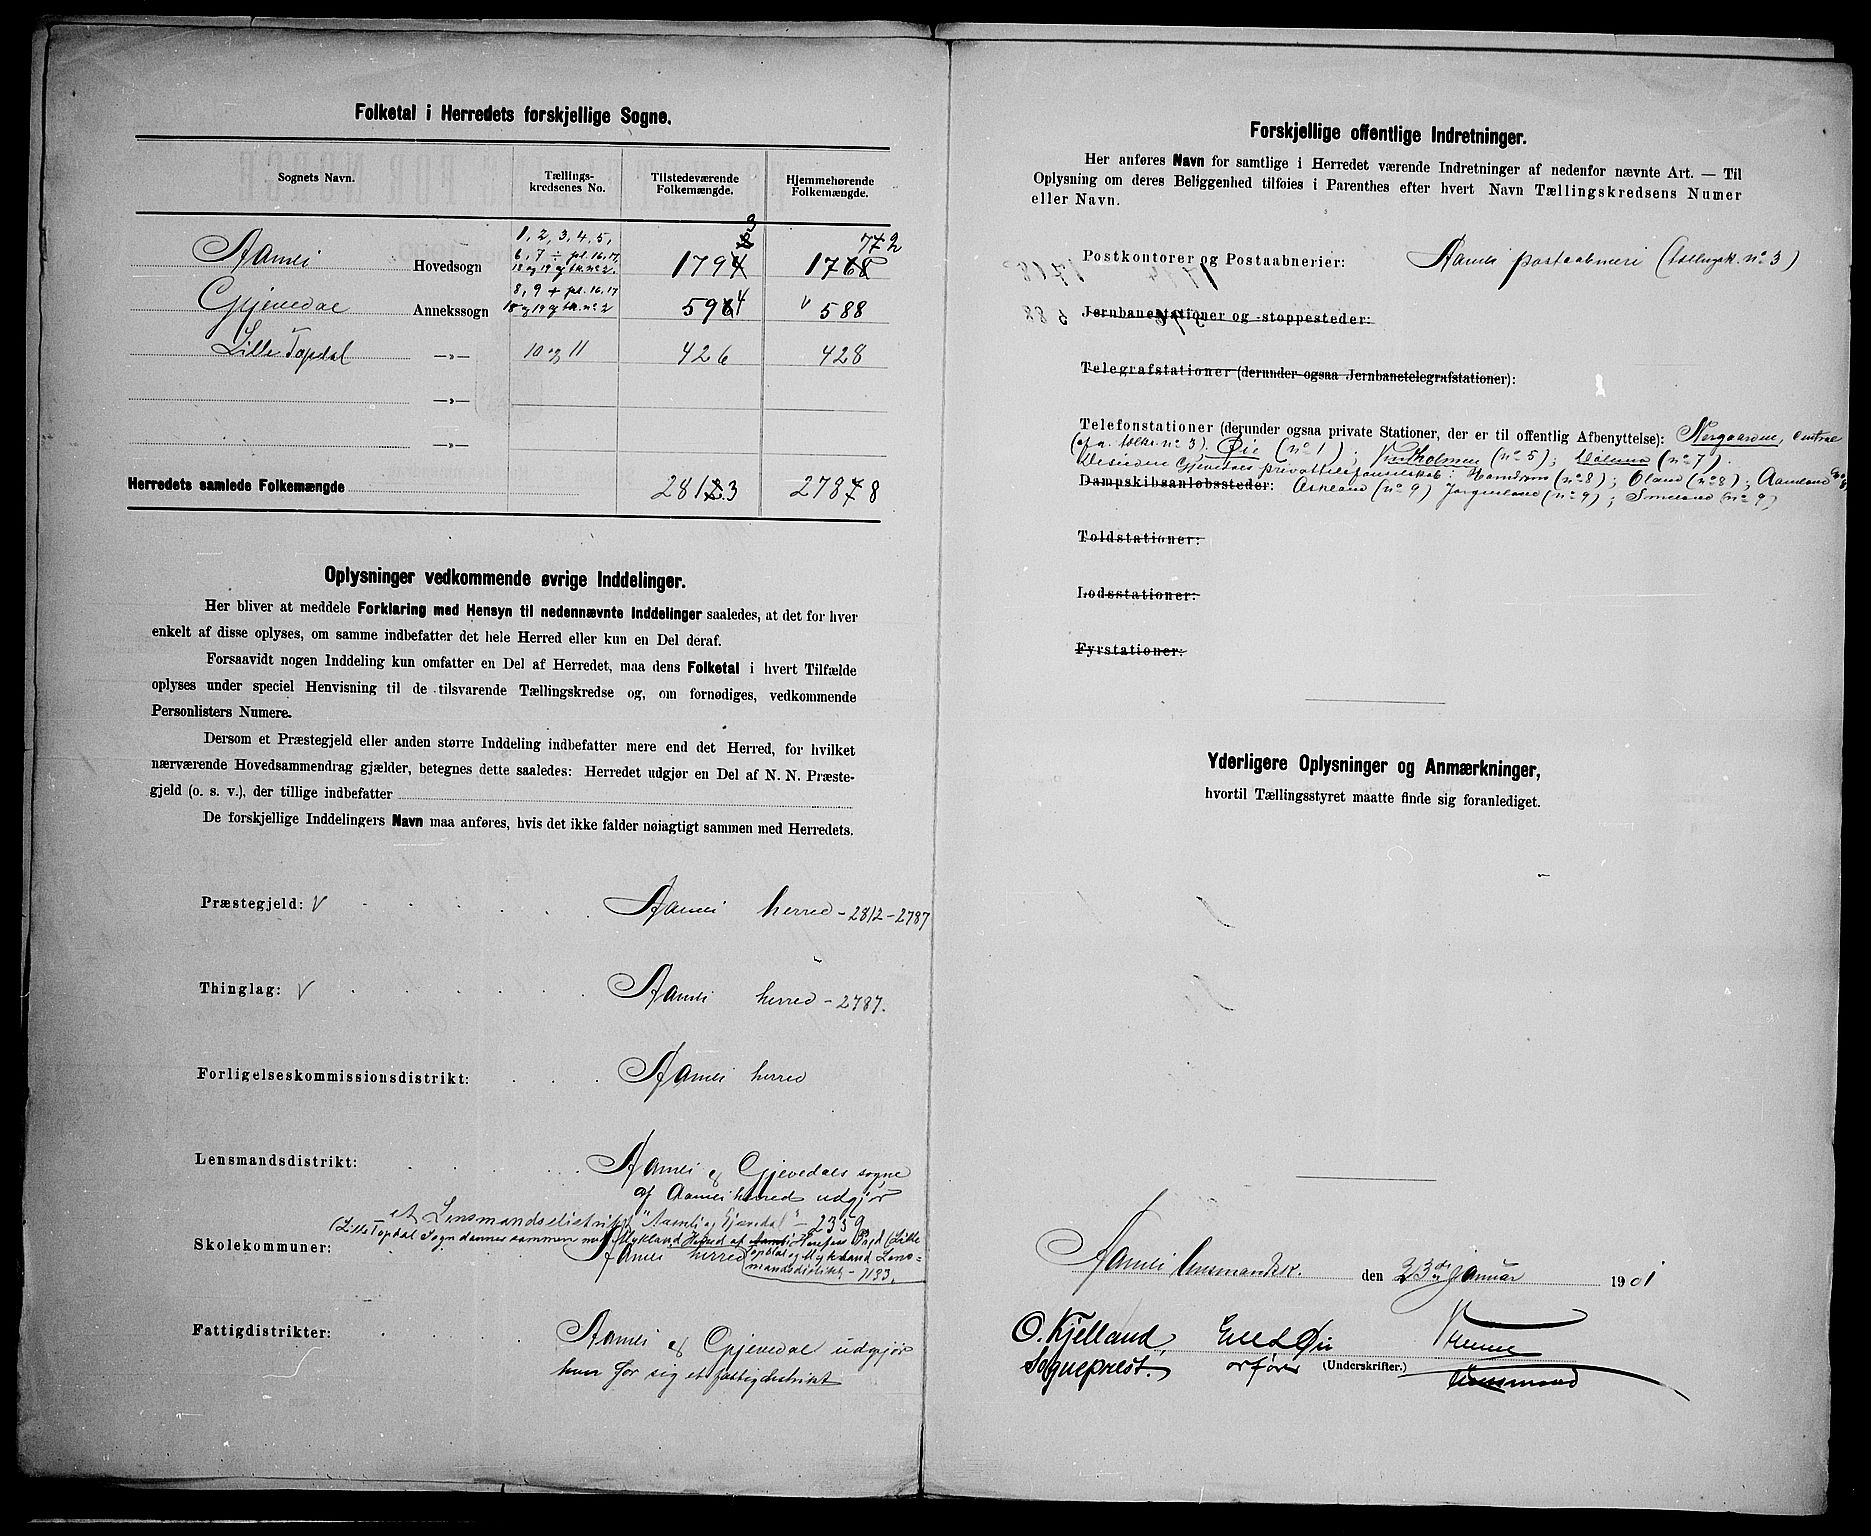 Folketal i Herredets forskjellige Sogne.
Sognets Navn. Tællings-kredsenes No. Tilstedeværende Folkemængde. Hjemmehørende Folkemængde.
Aamli Hovedsogn 1, 2, 3, 4, 5, 6, 7 ÷ pl. 16, 17, 18 og 19 af tk. no. 2. 1793 1772
Gjevedal Annekssogn 8, 9 + pl. 16, 17 18 og 19 af tk. no. 2 594 588
Lille Topdal —„— 10 og 11 426 428
—„—
—„—
Herredets samlede Folkemængde 2813 2788
Oplysninger vedkommende øvrige Inddelinger.
Her bliver at meddele Forklaring med Hensyn til nedennævnte Inddelinger saaledes, at det for hver
enkelt af disse oplyses, om samme indbefatter det hele Herred eller kun en Del deraf.
Forsaavidt nogen Inddeling kun omfatter en Del af Herredet, maa dens Folketal i hvert Tilfælde
oplyses under speciel Henvisning til de tilsvarende Tællingskredse og, om fornødiges, vedkommende
Personlisters Numere.
Dersom et Præstegjeld eller anden større Inddeling indbefatter mere end det Herred, for hvilket
nærværende Hovedsammendrag gjælder, betegnes dette saaledes: Herredet udgjør en Del af N. N. Præste-
gjeld (o. s. v.), der tillige indbefatter
De forskjellige Inddelingers Navn maa anføres, hvis det ikke falder nøiagtigt sammen med Herredets.
Præstegjeld: V Aamli herred - 2812 - 2787
Thinglag: V Aamli herred - 2787.
Forligelseskommissionsdistrikt: Aamli herred
Lensmandsdistrikt: Aamli & Gjevedals sogne
af Aamli herred udgjør
et Lensmandsdistrikt "Aamli og Gjevedal" - 2359
(Lille Topdal Sogn dannes sammen med Mykland Herred af Aamli (Lille
Topdal og Mykland Lens-
mandsdistrikt - 1133.
Skolekommuner: Aamli herred
Fattigdistrikter: Aamli & Gjevedal udgjør
hver for sig et fattigdistrikt
Forskjellige offentlige Indretninger.
Her anføres Navn for samtlige i Herredet værende Indretninger af nedenfor nævnte Art. — Til
Oplysning om deres Beliggenhed tilføies i Parenthes efter hvert Navn Tællingskredsens Numer
eller Navn.
Postkontorer og Postaabnerier: Aamli postaabneri (tællingsk. no 3)
Jernbanestationer og -stoppesteder:
Telegrafstationer (derunder ogsaa Jernbanetelegrafstationer):
Telefonstationer (derunder ogsaa private Stationer, der er til offentlig Afbenyttelse): Nergaarden, central
no. 3) Øie (no 1); (no 5); (no 7).
Desuden Gjevedals privattelefonselskab: (no 8); Øland (no 8); Aamland
Dampskibsanløbssteder: Askland (no 9) Jørgenland (no 9); Smeland (no 9)
Toldstationer:
Lodsstationer:
Fyrstationer:
Yderligere Oplysninger og Anmærkninger,
hvortil Tællingsstyret maatte finde sig foranlediget.
Aamli lensmandsk. den 23de januar 1901
O. Kjelland, Øie
Sogneprest. orfører (Underskrifter.) Lensmand